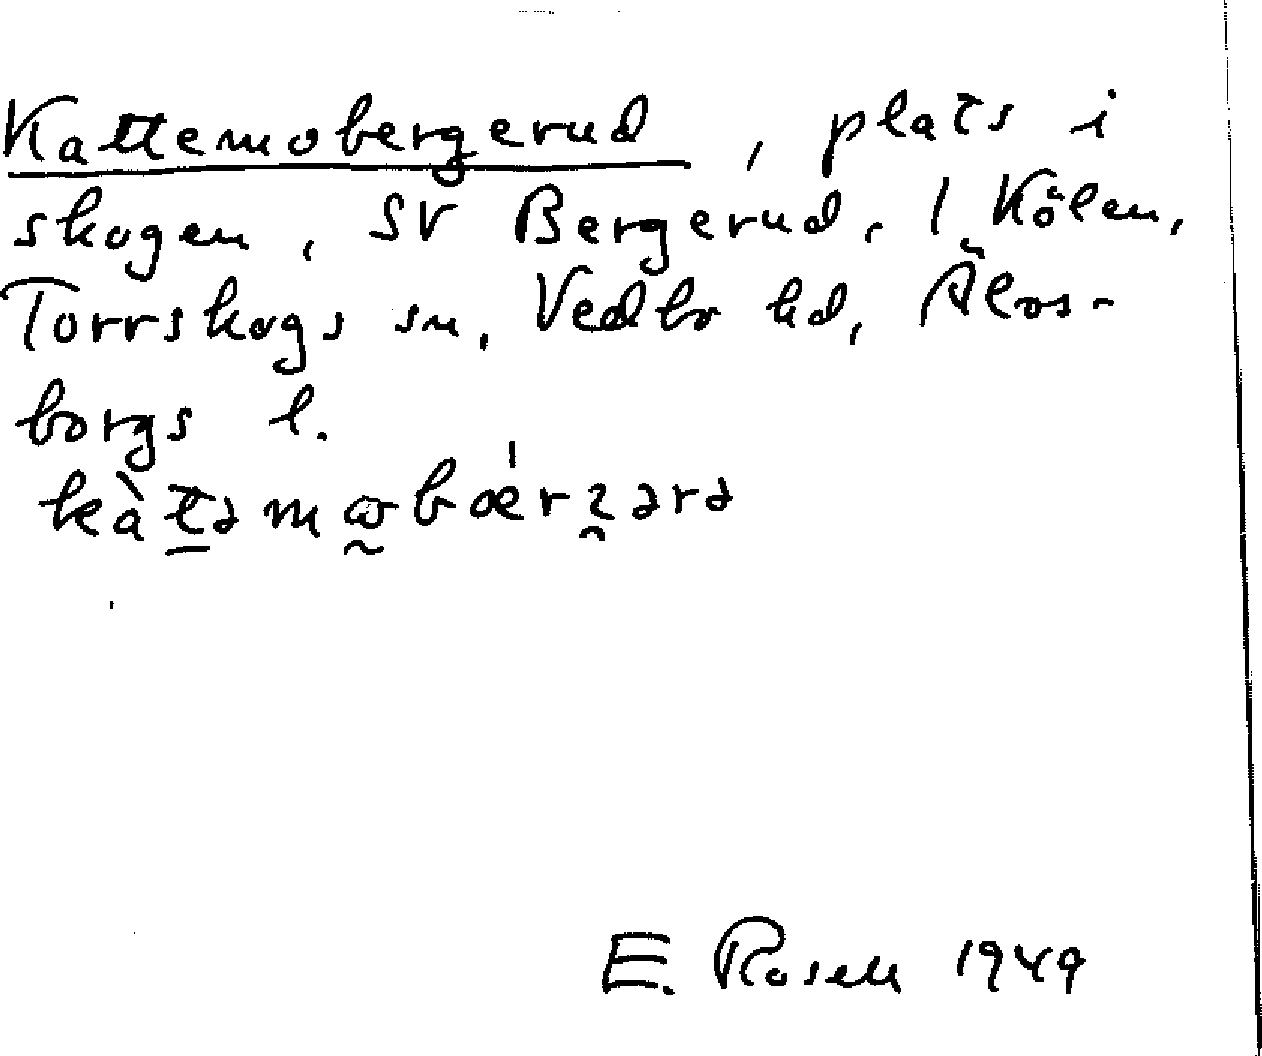 Kattemobergerud, plats i
skogen, SV Bergerud, 1 Kölen,
Torrskogs sn, Vedbo hd, Älvs-
borgs l.
E. Rosell 1949